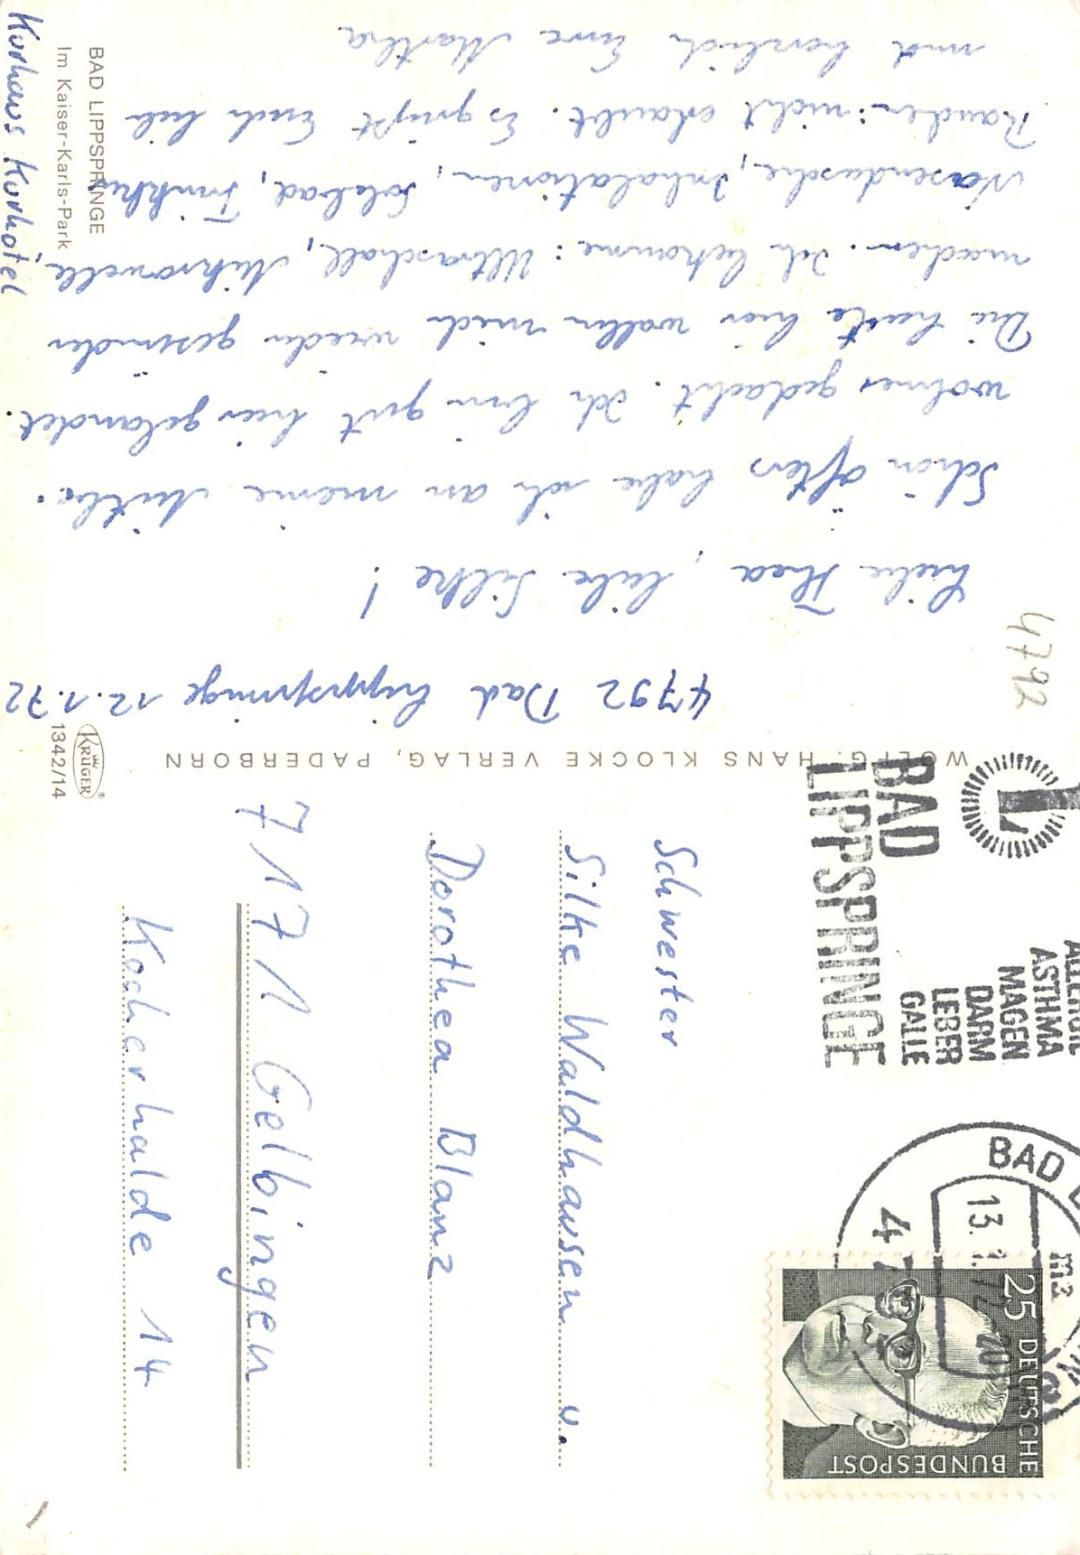 BAD LIPPSPRINGE
Im Kaiser-Karls-Park
Kurhaus Kurhotel
4792 Bad Lippspringe 12.1.72
Liebe Thea, liebe Silke!
Schon öfters habe ich an meine Mitbe-
wohner gedacht. Ich bin gut hier gelandet.
Die Leute hier wollen mich wieder gesünder
machen. Ich bekomme: Ultraschall, Mikrowelle,
Nasendusche, Inhalationen, Solebad, Trinkkur
nicht erlaubt. Es grüßt Euch lieb
und herzlich Eure Martha
4792
WOLFG. HANS KLOCKE VERLAG, PADERBORN
KRÜGER
1342/14
BAD
LIPPSPRINGE
L
ALLERGIE
ASTHMA
MAGEN
DARM
LEBER
GALLE
BAD L
13.1.72
ma
25 DEUTSCHE
BUNDESPOST
Schwester
Silke Waldhausen u.
Dorothea Blanz
7171 Gelbingen
Kocherhalde 14